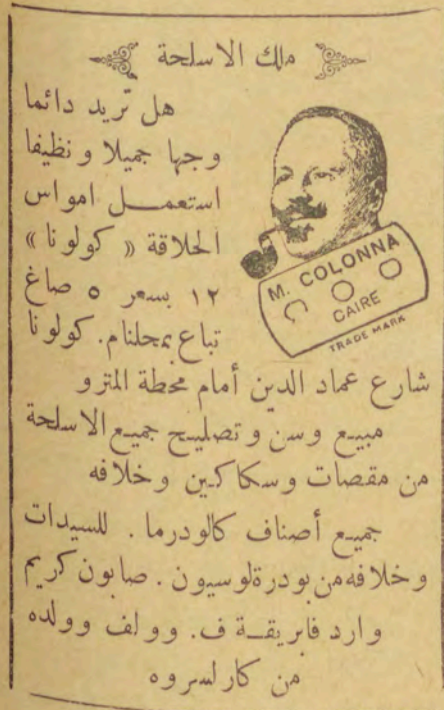 ملك الاسلحة
هل تريد دائما
وجها جميلا ونظيفا
استعمل امواس
الحلاقة « كولونا »
١٢ بسعر ٥ صاغ
تباع بمحلنا م. كولونا
M. COLONNA
CAIRE
TRADE MARK
شارع عماد الدين أمام محطة المترو
مبيع وسن وتصليح جميع الاسلحة
من مقصات وسكاكين وخلافه
جميع أصناف كالودرما . للسيدات
وخلافه من بودرة لوسيون . صابون كريم
وارد فابريقة ف. وولف وولده
من كارلسروه